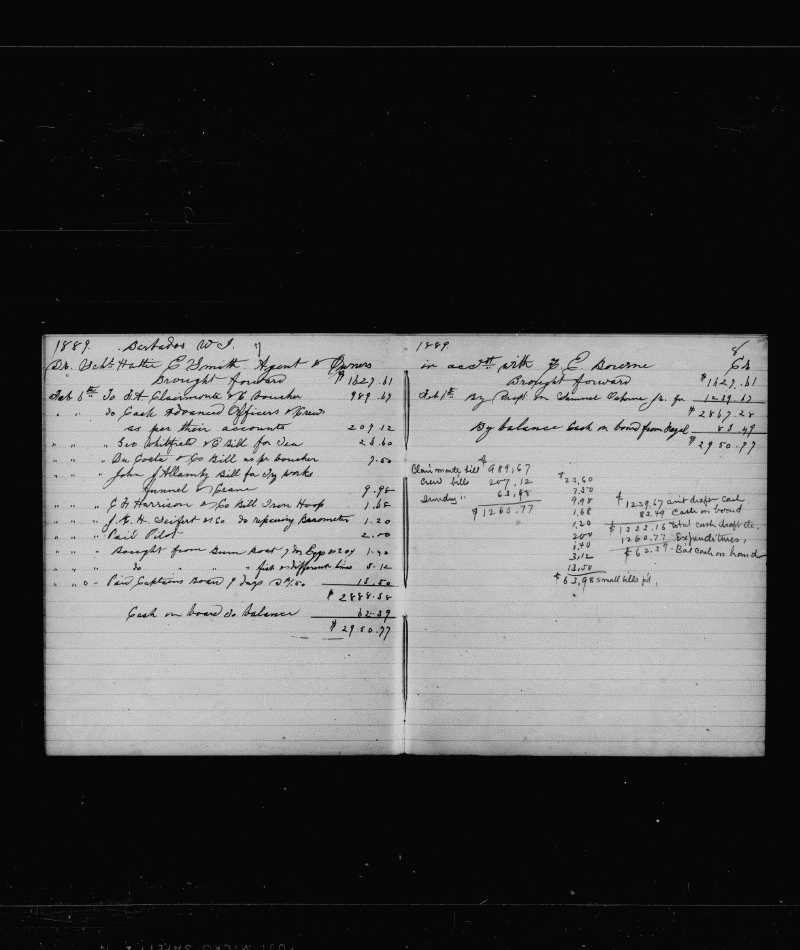 1889. Barbados W I. 7
Dr. Schr. Hattie E Smith. Agent & Owners
Brought forward $1627.61
Feb 6th To F A Clairmonte & C voucher 989.67
" " To Cash Advanced Officers & Crew
as per their accounts 207.12
" " " Geo Whitfield & C Bill for Tea 23.60
" " " Da Costa & Co Bill as pr voucher 7.50
" " " John Bill for works
Funnel & Crane 9.98
" " " Harrison & Co Bill Iron Hoop 1.68
" " " J. E. H. Seifert & Co do repairing Barometer 1.20
" " " Paid Pilot 2.00
" " " Bought from Bum Boat 7 dz Eggs 20¢ 1.40
" " " do " " " fish at different times 3.12
" " " Paid Captains Board 9 days 13.50
$2888.38
Cash on board to balance 62.39
$2950.77
1889 8
in acct with E. Bourne Cr
Brought forward $1627.61
Feb 6th By Draft on Samuel Osborne Jr. for 1239.67
$2867.28
By balance Cash on board from 83.49
$2950.77
Clairmonte bill $989.67
Crew bills 207.12
Sundry " 63.98
$1260.77
$23.60
7.50
9.98
1.68
1.20
2.00
1.40
3.12
13.50
$63.98 small bills pd.
$1239.67 amt draft cash
83.49 Cash on board
$1323.16 total cash draft etc.
1260.77 Expenditures,
$62.39. Bal cash on board